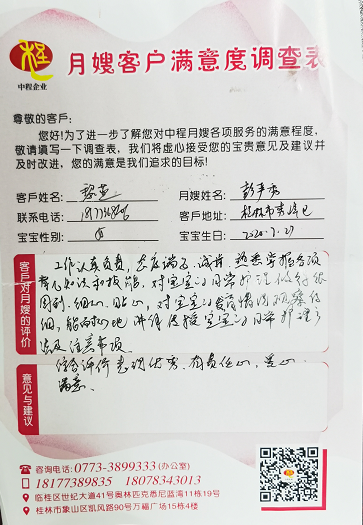 程
中程企业
月嫂客户满意度调查表
尊敬的客户:
您好!为了进一步了解您对中程月嫂各项服务的满意程度,
敬请填写一下调查表,我们将虚心接受您的宝贵意见及建议并
及时改进,您的满意是我们追求的目标!
客户姓名: 月嫂姓名:
联系电话: 客户地址: 桂林市
宝宝性别: 女 宝宝生日: 2020.7.27
客户对月嫂的评价
工作认真负责,态度端正、诚恳,熟悉掌握各项
育儿知识和技能,对宝宝的日常护理做得很
周到、细心、贴心,对宝宝的发育情况观察仔
细,能及时地讲解传授宝宝的日常护理
以及注意事项。
意见与建议
综合评价表现优秀、有责任心,
满意。
咨询电话: 0773-3899333 (办公室)
18177389835 18078343013
临桂区世纪大道41号奥林匹克悉尼蓝湾11栋19号
桂林市象山区凯风路90号万福广场15栋4号